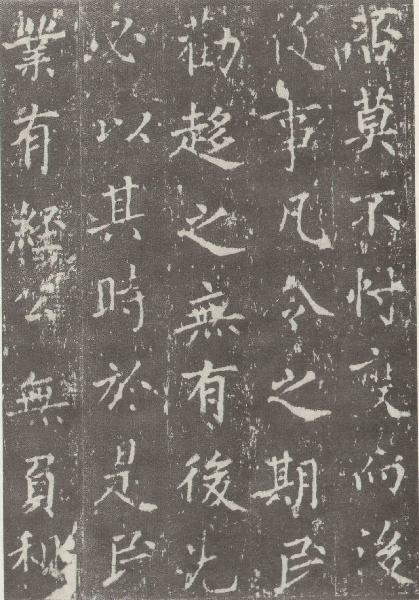 否莫不忖度而後
從事凡令之期民
勸趍之無有後先
必以其時於是民
業有經公無負租